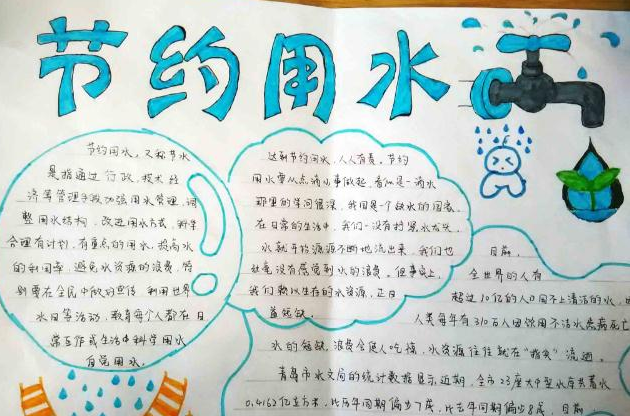 节约用水
节约用水，又称节水
是指通过行政、技术、经
济等管理手段加强用水管理，调
整用水结构，改进用水方式，科学
合理有计划，有重点的用水，提高水
的利用率，避免水资源的浪费，特
别要在全民中做的宣传，利用世界
水日等活动，教育每个人都在日
常工作或生活中科学用水
自觉用水。
达到节约用水，人人有责。节约
用水要从点滴小事做起，看似是一滴水
那里的学问很深，我国是个缺水的国家
在日常的生活中，我们一没有拧紧水龙头
水就开始源源不断地流出来，我们也
丝毫没有感觉到水的浪费。但事实上，
我们赖以生存的水资源，正日
益短缺。
目前，
全世界的人有
超过10亿的人口用不上清洁的水，
人类每年有310万人因饮用不洁水患病死亡
水的短缺、浪费令人吃惊，水资源往往就在“指尖”流逝。
青岛市水文局的统计数据显示，近期，全市23座大中型水库共蓄水
0.4162亿立方米，比历年同期偏少7成，比去年同期偏少8成，目前